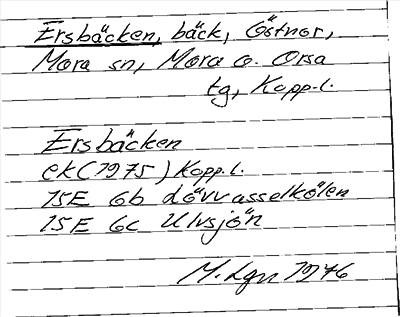 Ersbäcken, bäck, Östnor,
Mora sn, Mora o. Orsa
tg, Kopp.l.
Ersbäcken
ek (1975) Kopp.l.
15E 6b Lövvasselkölen
15E 6c Ulvsjön
M. Lgn 1976